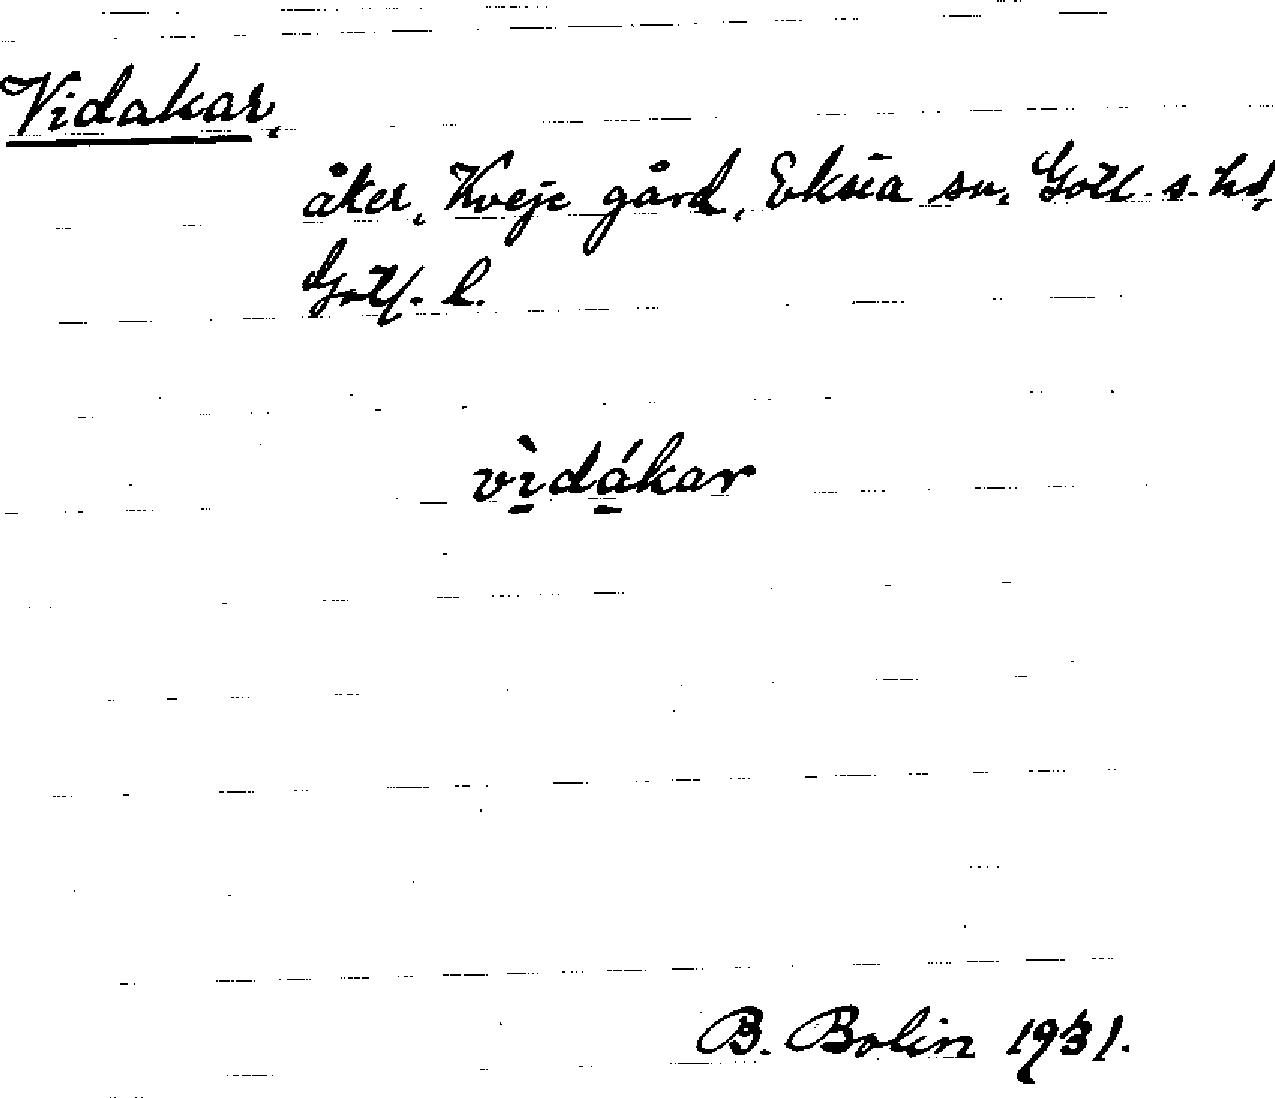 Vidakar,
åker, Kveje gård, Eksta sn, Gotl. s. hd,
Gotl. l.
vìdákar
B. Bolin 1931.